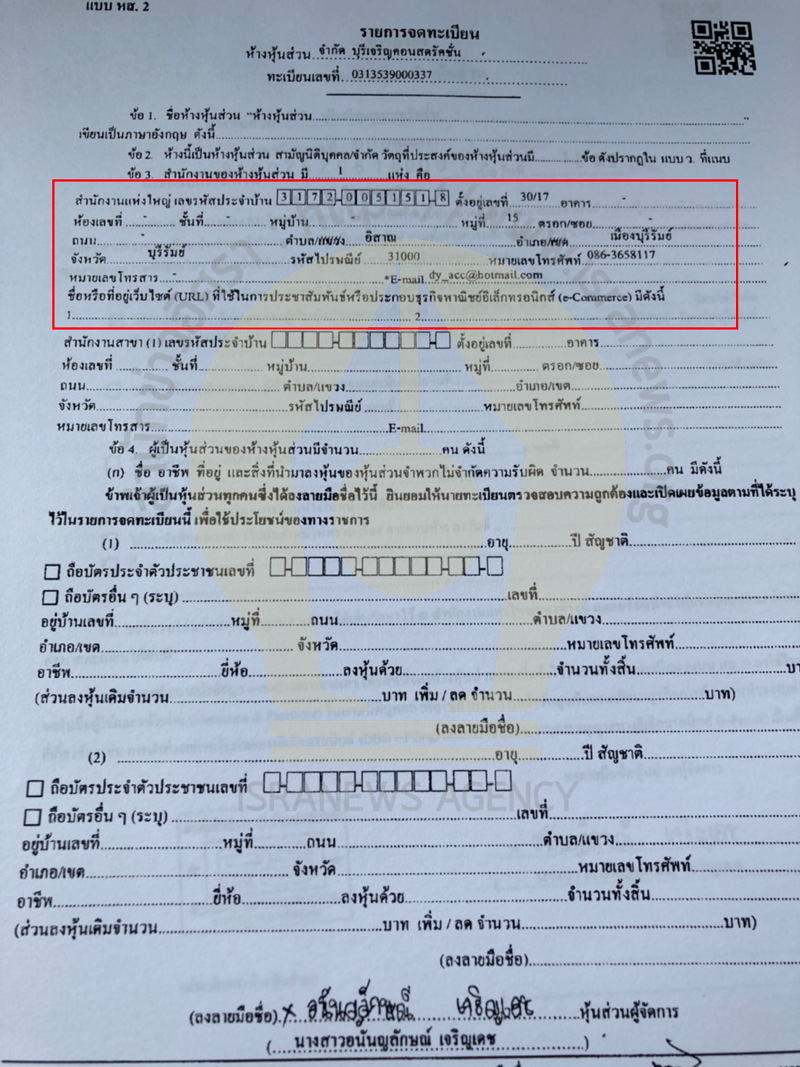 แบบ หส. 2
รายการจดทะเบียน
ห้างหุ้นส่วน จำกัด บุรีเจริญคอนสตรัคชั่น
ทะเบียนเลขที่ 0313539000337
ข้อ 1. ชื่อห้างหุ้นส่วน "ห้างหุ้นส่วน..............................."
เขียนเป็นภาษาอังกฤษ ดังนี้...............................
ข้อ 2. ห้างนี้เป็นห้างหุ้นส่วน สามัญนิติบุคคล/จำกัด วัตถุที่ประสงค์ของห้างหุ้นส่วนมี............ข้อ ดังปรากฏใน แบบ ว. ที่แนบ
ข้อ 3. สำนักงานของห้างหุ้นส่วน มี 1 แห่ง คือ
สำนักงานแห่งใหญ่ เลขรหัสประจำบ้าน 3172-005151-8 ตั้งอยู่เลขที่ 30/17 อาคาร -
ห้องเลขที่ - ชั้นที่ - หมู่บ้าน - หมู่ที่ 15 ตรอก/ซอย -
ถนน - ตำบล/แขวง อิสาณ อำเภอ/เขต เมืองบุรีรัมย์
จังหวัด บุรีรัมย์ รหัสไปรษณีย์ 31000 หมายเลขโทรศัพท์ 086-3658117
หมายเลขโทรสาร - *E-mail dy_acc@hotmail.com
ชื่อหรือที่อยู่เว็บไซต์ (URL) ที่ใช้ในการประชาสัมพันธ์หรือประกอบธุรกิจพาณิชย์อิเล็กทรอนิกส์ (e-Commerce) มีดังนี้
1...............................2...............................
สำนักงานสาขา (1) เลขรหัสประจำบ้าน ตั้งอยู่เลขที่............อาคาร............
ห้องเลขที่............ชั้นที่............หมู่บ้าน............หมู่ที่............ตรอก/ซอย............
ถนน............ตำบล/แขวง............อำเภอ/เขต............
จังหวัด............รหัสไปรษณีย์............หมายเลขโทรศัพท์............
หมายเลขโทรสาร............E-mail............
ข้อ 4. ผู้เป็นหุ้นส่วนของห้างหุ้นส่วนมีจำนวน............คน ดังนี้
(ก) ชื่อ อาชีพ ที่อยู่ และสิ่งที่นำมาลงหุ้นของหุ้นส่วนจำพวกไม่จำกัดความรับผิด จำนวน............คน มีดังนี้
ข้าพเจ้าผู้เป็นหุ้นส่วนทุกคนซึ่งได้ลงลายมือชื่อไว้นี้ ยินยอมให้นายทะเบียนตรวจสอบความถูกต้องและเปิดเผยข้อมูลตามที่ได้ระบุ
ไว้ในรายการจดทะเบียนนี้ เพื่อใช้ประโยชน์ของทางราชการ
(1) ...............................อายุ............ปี สัญชาติ............
ถือบัตรประจำตัวประชาชนเลขที่
ถือบัตรอื่น ๆ (ระบุ)...............................เลขที่............
อยู่บ้านเลขที่............หมู่ที่............ถนน............ตำบล/แขวง............
อำเภอ/เขต............จังหวัด............หมายเลขโทรศัพท์............
อาชีพ............ยี่ห้อ............ลงหุ้นด้วย............จำนวนทั้งสิ้น............บา
(ส่วนลงหุ้นเดิมจำนวน............บาท เพิ่ม / ลด จำนวน............บาท)
(ลงลายมือชื่อ)...............................
(2) ...............................อายุ............ปี สัญชาติ............
ถือบัตรประจำตัวประชาชนเลขที่
ถือบัตรอื่น ๆ (ระบุ)...............................เลขที่............
อยู่บ้านเลขที่............หมู่ที่............ถนน............ตำบล/แขวง............
อำเภอ/เขต............จังหวัด............หมายเลขโทรศัพท์............
อาชีพ............ยี่ห้อ............ลงหุ้นด้วย............จำนวนทั้งสิ้น............
(ส่วนลงหุ้นเดิมจำนวน............บาท เพิ่ม / ลด จำนวน............บาท)
(ลงลายมือชื่อ)...............................
(ลงลายมือชื่อ) x อนันญลักษณ์ เจริญเดช หุ้นส่วนผู้จัดการ
(นางสาวอนันญลักษณ์ เจริญเดช)
สำนักข่าวอิศรา
isranews.org
ISRANEWS AGENCY